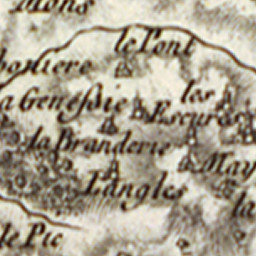 Mons
le Pont
boniere
a Genessie
les
Escures
la Branderie
May
Langles
la
le Pic